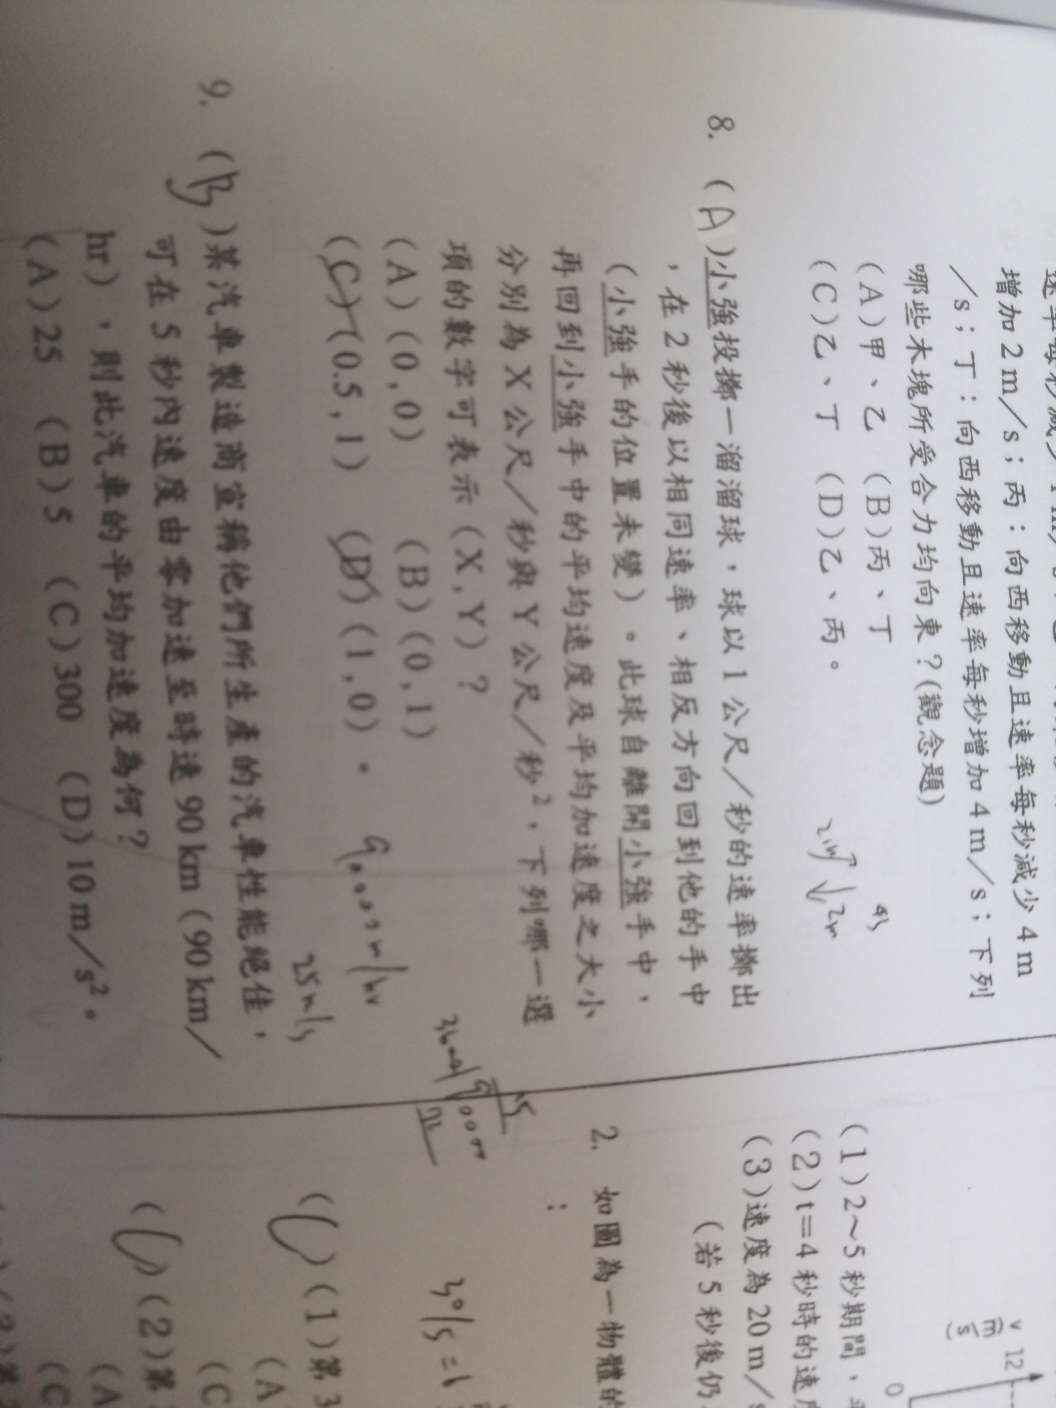 增加2m/s；丙：向西移動且速率每秒減少4m
/s；丁：向西移動且速率每秒增加4m/s；下列
哪些木塊所受合力均向東？(觀念題)
(A)甲、乙 (B)丙、丁
(C)乙、丁 (D)乙、丙。
8. (A)小強投擲一溜溜球，球以1公尺/秒的速率擲出
，在2秒後以相同速率、相反方向回到他的手中
(小強手的位置未變)。此球自離開小強手中，
再回到小強手中的平均速度及平均加速度之大小
分別為X公尺/秒與Y公尺/秒²，下列哪一選
項的數字可表示(X,Y)？
(A)(0,0) (B)(0,1)
(C)(0.5,1) (D)(1,0)。
9. (B)某汽車製造商宣稱他們所生產的汽車性能絕佳，
可在5秒內速度由零加速至時速90km(90km/
hr)，則此汽車的平均加速度為何？
(A)25 (B)5 (C)300 (D)10m/s²。
25m/s
v
(m/s)
12
0
(1)2～5秒期間，
(2)t=4秒時的速
(3)速度為20m/s
(若5秒後仍
2. 如圖為一物體的
：
(1)第3
(A
(C
(2)第
(A
(C